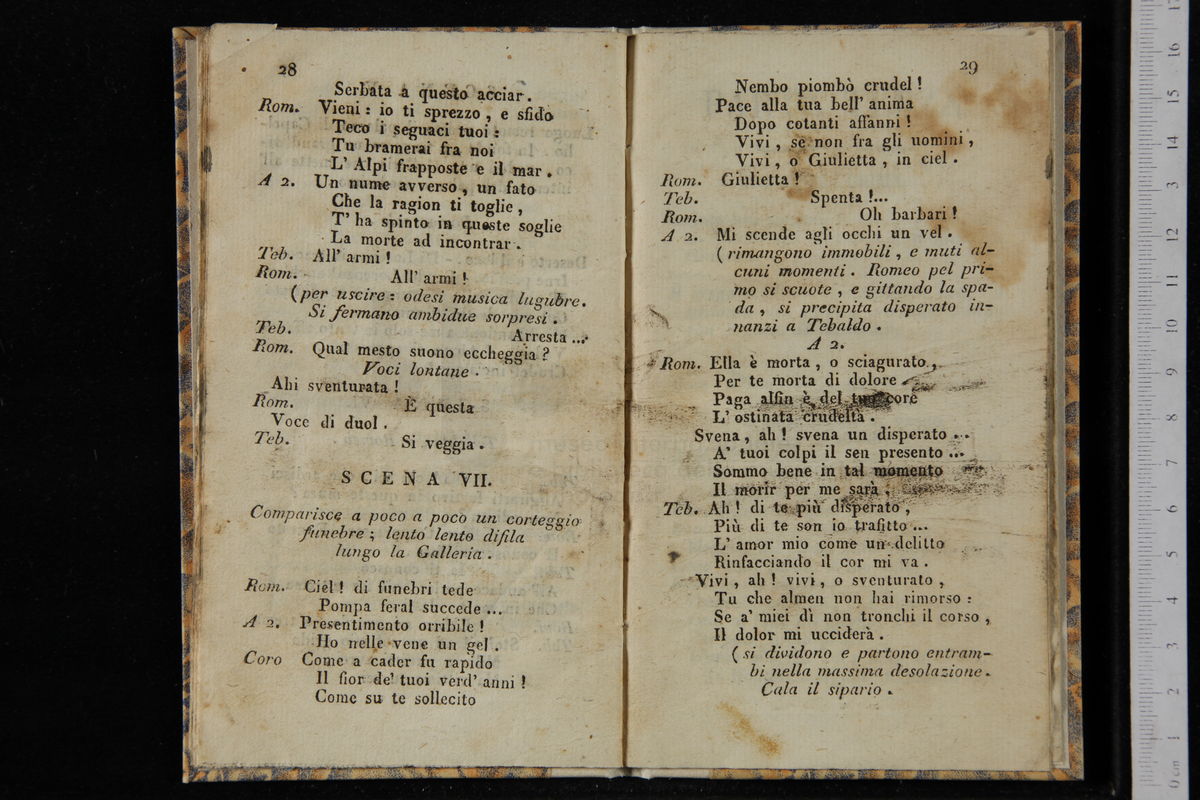 28
Serbata a questo acciar.
Rom. Vieni : io ti sprezzo , e sfido
Teco i seguaci tuoi :
Tu bramerai fra noi
L' Alpi frapposte e il mar .
A 2. Un nume avverso , un fato
Che la ragion ti toglie ,
T' ha spinto in queste soglie
La morte ad incontrar .
Teb. All' armi !
Rom. All' armi !
( per uscire : odesi musica lugubre.
Si fermano ambidue sorpresi .
Teb. Arresta ...
Rom. Qual mesto suono eccheggia ?
Voci lontane .
Ahi sventurata !
Rom. È questa
Voce di duol .
Teb. Si veggia .
SCENA VII.
Comparisce a poco a poco un corteggio
funebre ; lento lento difila
lungo la Galleria .
Rom. Ciel ! di funebri tede
Pompa feral succede ...
A 2. Presentimento orribile !
Ho nelle vene un gel .
Coro Come a cader fu rapido
Il fior de' tuoi verd' anni !
Come su te sollecito
29
Nembo piombò crudel !
Pace alla tua bell' anima
Dopo cotanti affanni !
Vivi , se non fra gli uomini ,
Vivi , o Giulietta , in ciel .
Rom. Giulietta !
Teb. Spenta !...
Rom. Oh barbari !
A 2. Mi scende agli occhi un vel .
( rimangono immobili , e muti al-
cuni momenti . Romeo pel pri-
mo si scuote , e gittando la spa-
da , si precipita disperato in-
nanzi a Tebaldo .
A 2.
Rom. Ella è morta , o sciagurato ,
Per te morta di dolore
Paga alfin è del tuo core
L' ostinata crudeltà .
Svena , ah ! svena un disperato ...
A' tuoi colpi il sen presento ...
Sommo bene in tal momento
Il morir per me sarà .
Teb. Ah ! di te più disperato ,
Più di te son io trafitto ...
L' amor mio come un delitto
Rinfacciando il cor mi va .
Vivi , ah ! vivi , o sventurato ,
Tu che almen non hai rimorso :
Se a' miei dì non tronchi il corso ,
Il dolor mi ucciderà .
( si dividono e partono entram-
bi nella massima desolazione .
Cala il sipario .